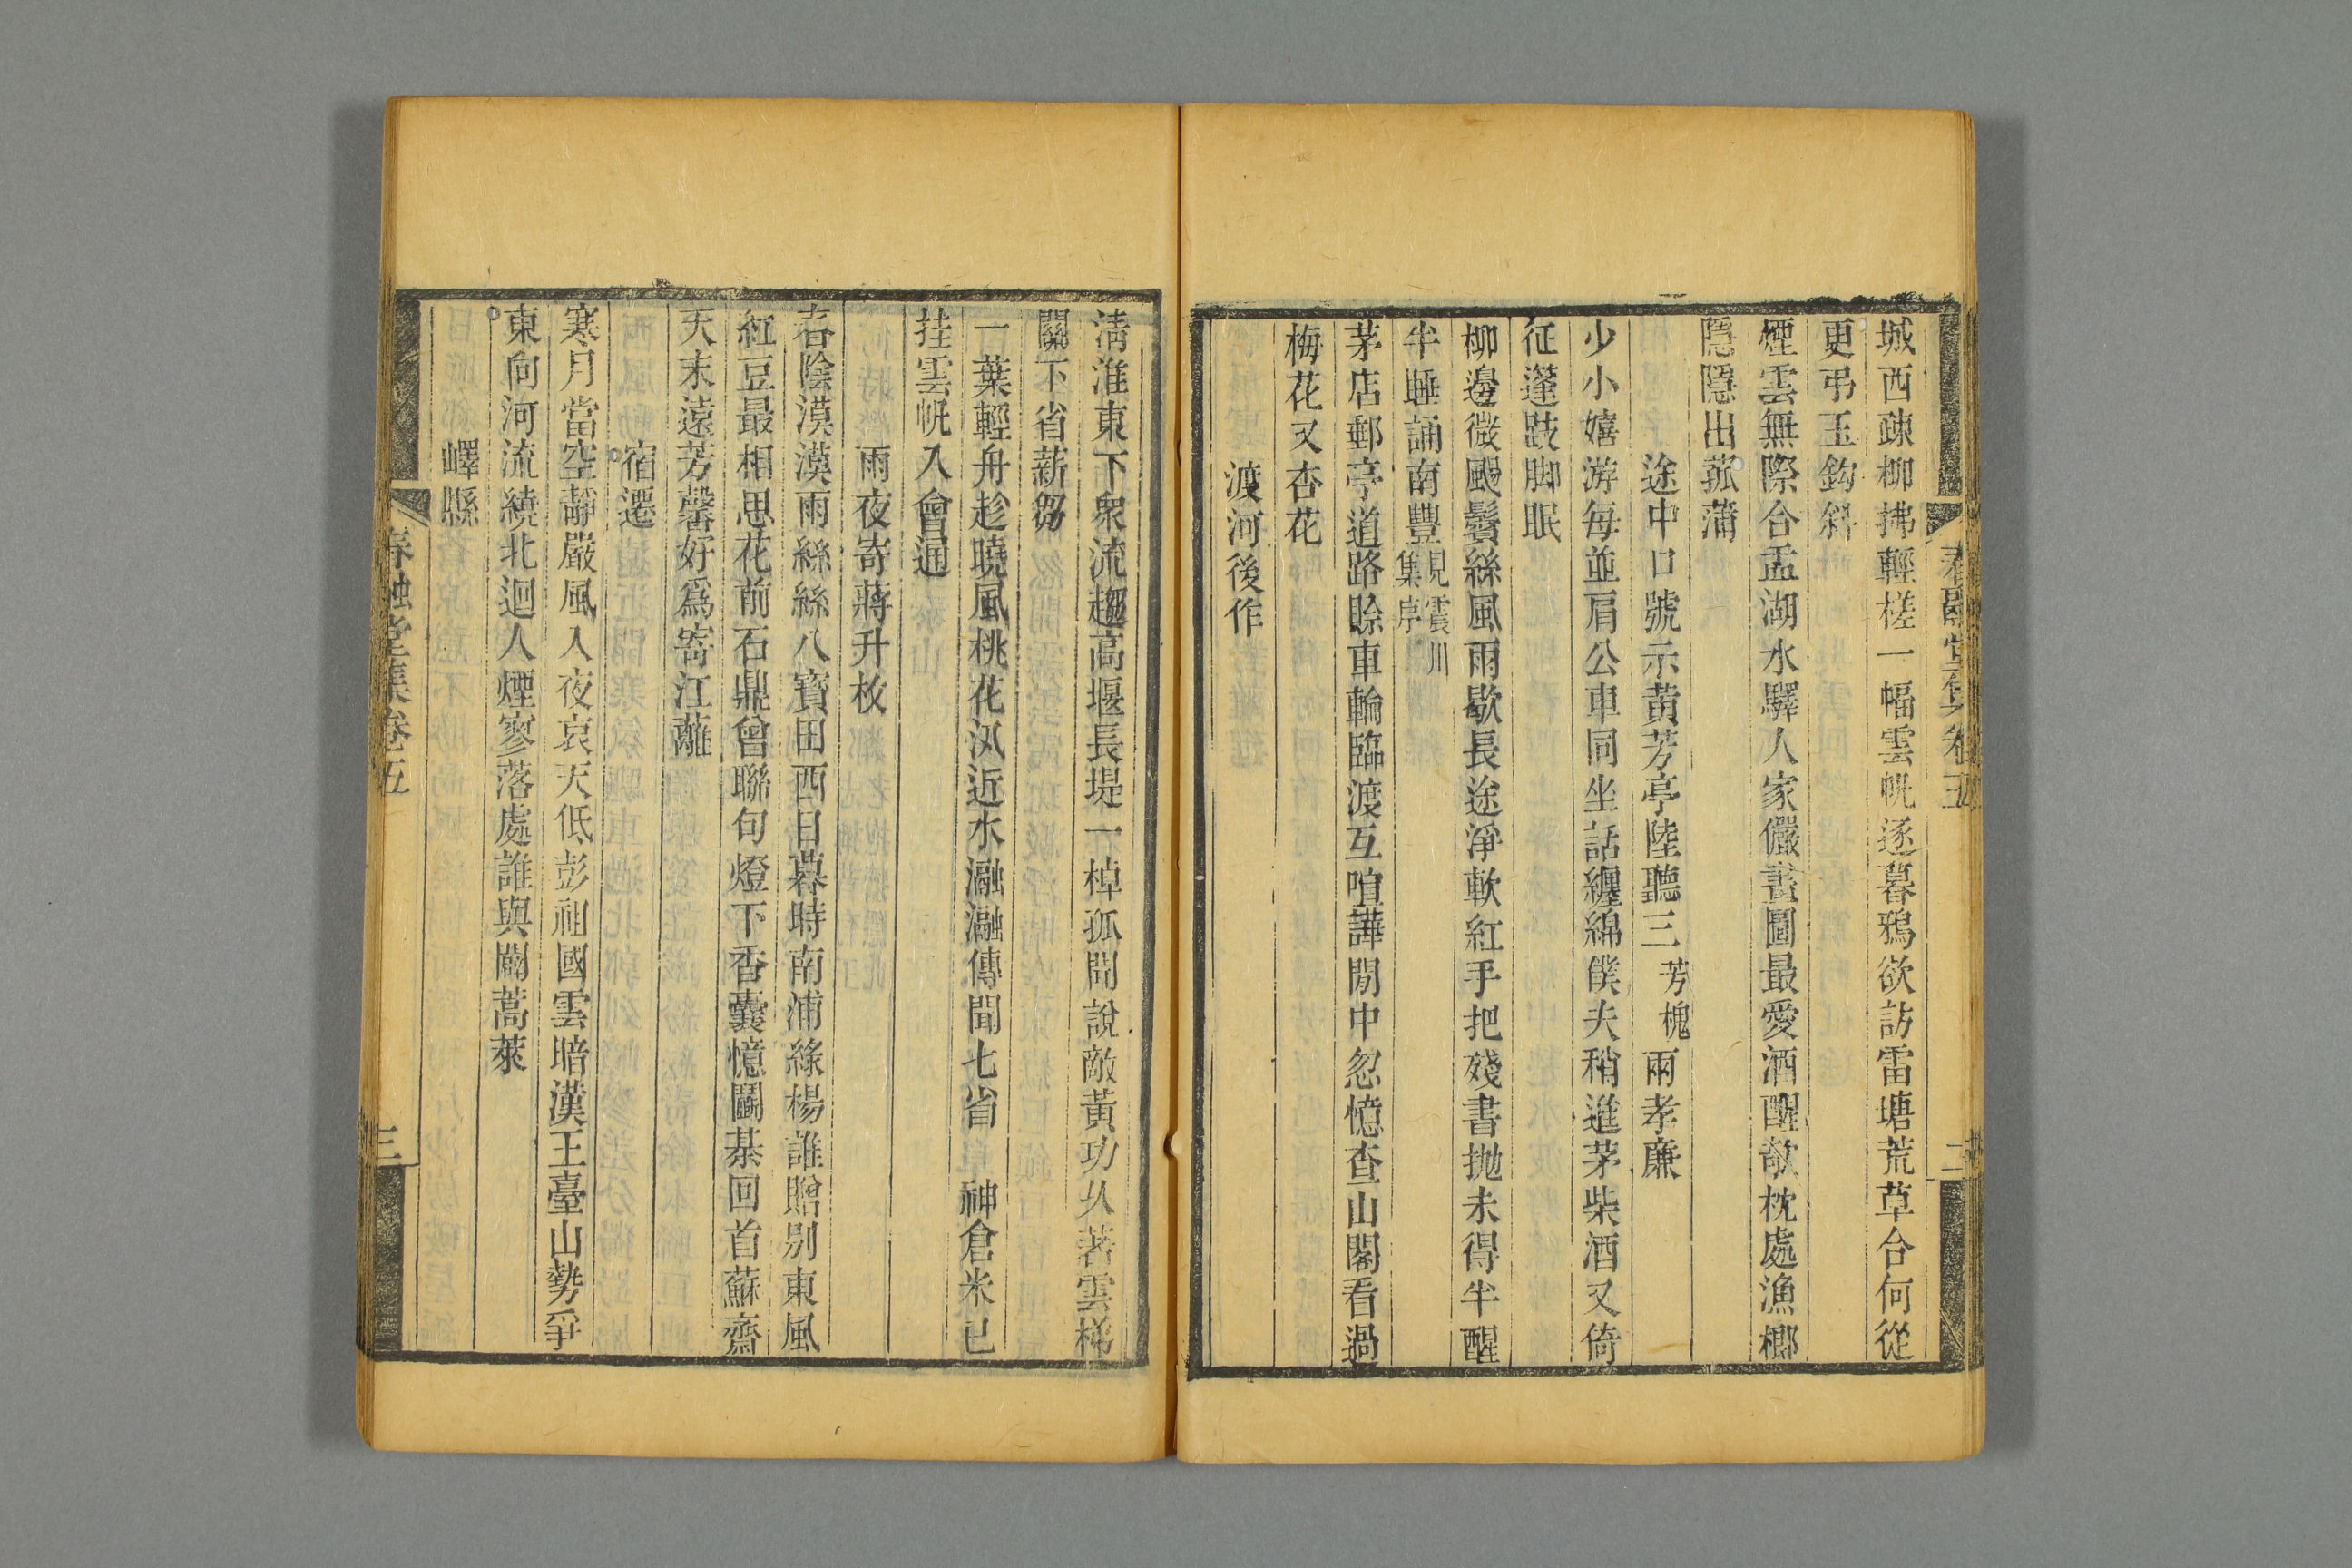 春融堂集卷五
二
城西疎柳拂輕槎一幅雲帆逐暮鴉欲訪雷塘荒草合何從
更弔玉鈎斜
煙雲無際合盂湖水驛人家儼畫圖最愛酒醒欹枕處漁榔
隱隱出菰蒲
途中口號示黄芳亭陸聽三芳槐兩孝廉
少小嬉游每並肩公車同坐話纏綿僕夫稍進茅柴酒又倚
征篷跂脚眠
柳邊微颺鬢絲風雨歇長途淨軟紅手把殘書抛未得半醒
半睡誦南豐見震川集序
茅店郵亭道路賒車輪臨渡互喧譁閒中忽憶查山閣看過
梅花又杏花
渡河後作
淸淮東下衆流趨高堰長堤一棹孤聞說敵黃功㕥著雲梯
關下省薪芻
一葉輕舟趁曉風桃花汛近水瀜瀜傳聞七省神倉米已
挂雲帆入會通
雨夜寄蔣升枚
春陰漠漠雨絲絲八寶田西日暮時南浦綠楊誰贈别東風
紅豆最相思花前石鼎曾聯句燈下香囊憶鬭棊回首蘇齋
天末遠芳馨好爲寄江蘺
宿遷
寒月當空靜嚴風入夜哀天低彭祖國雲暗漢王臺山勢爭
東向河流繞北迴人煙寥落處誰與闢蒿萊
嶧縣
春融堂集卷五
三